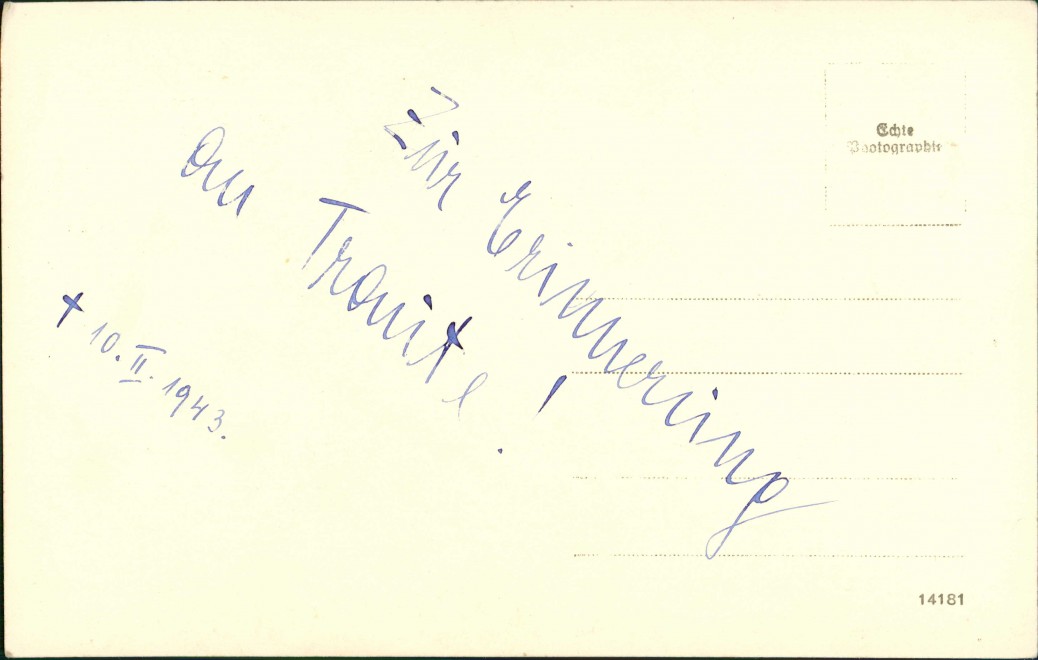 Zur Erinnerung
an Traute!
+ 10. II. 1943.
Echte
Photographie
14181